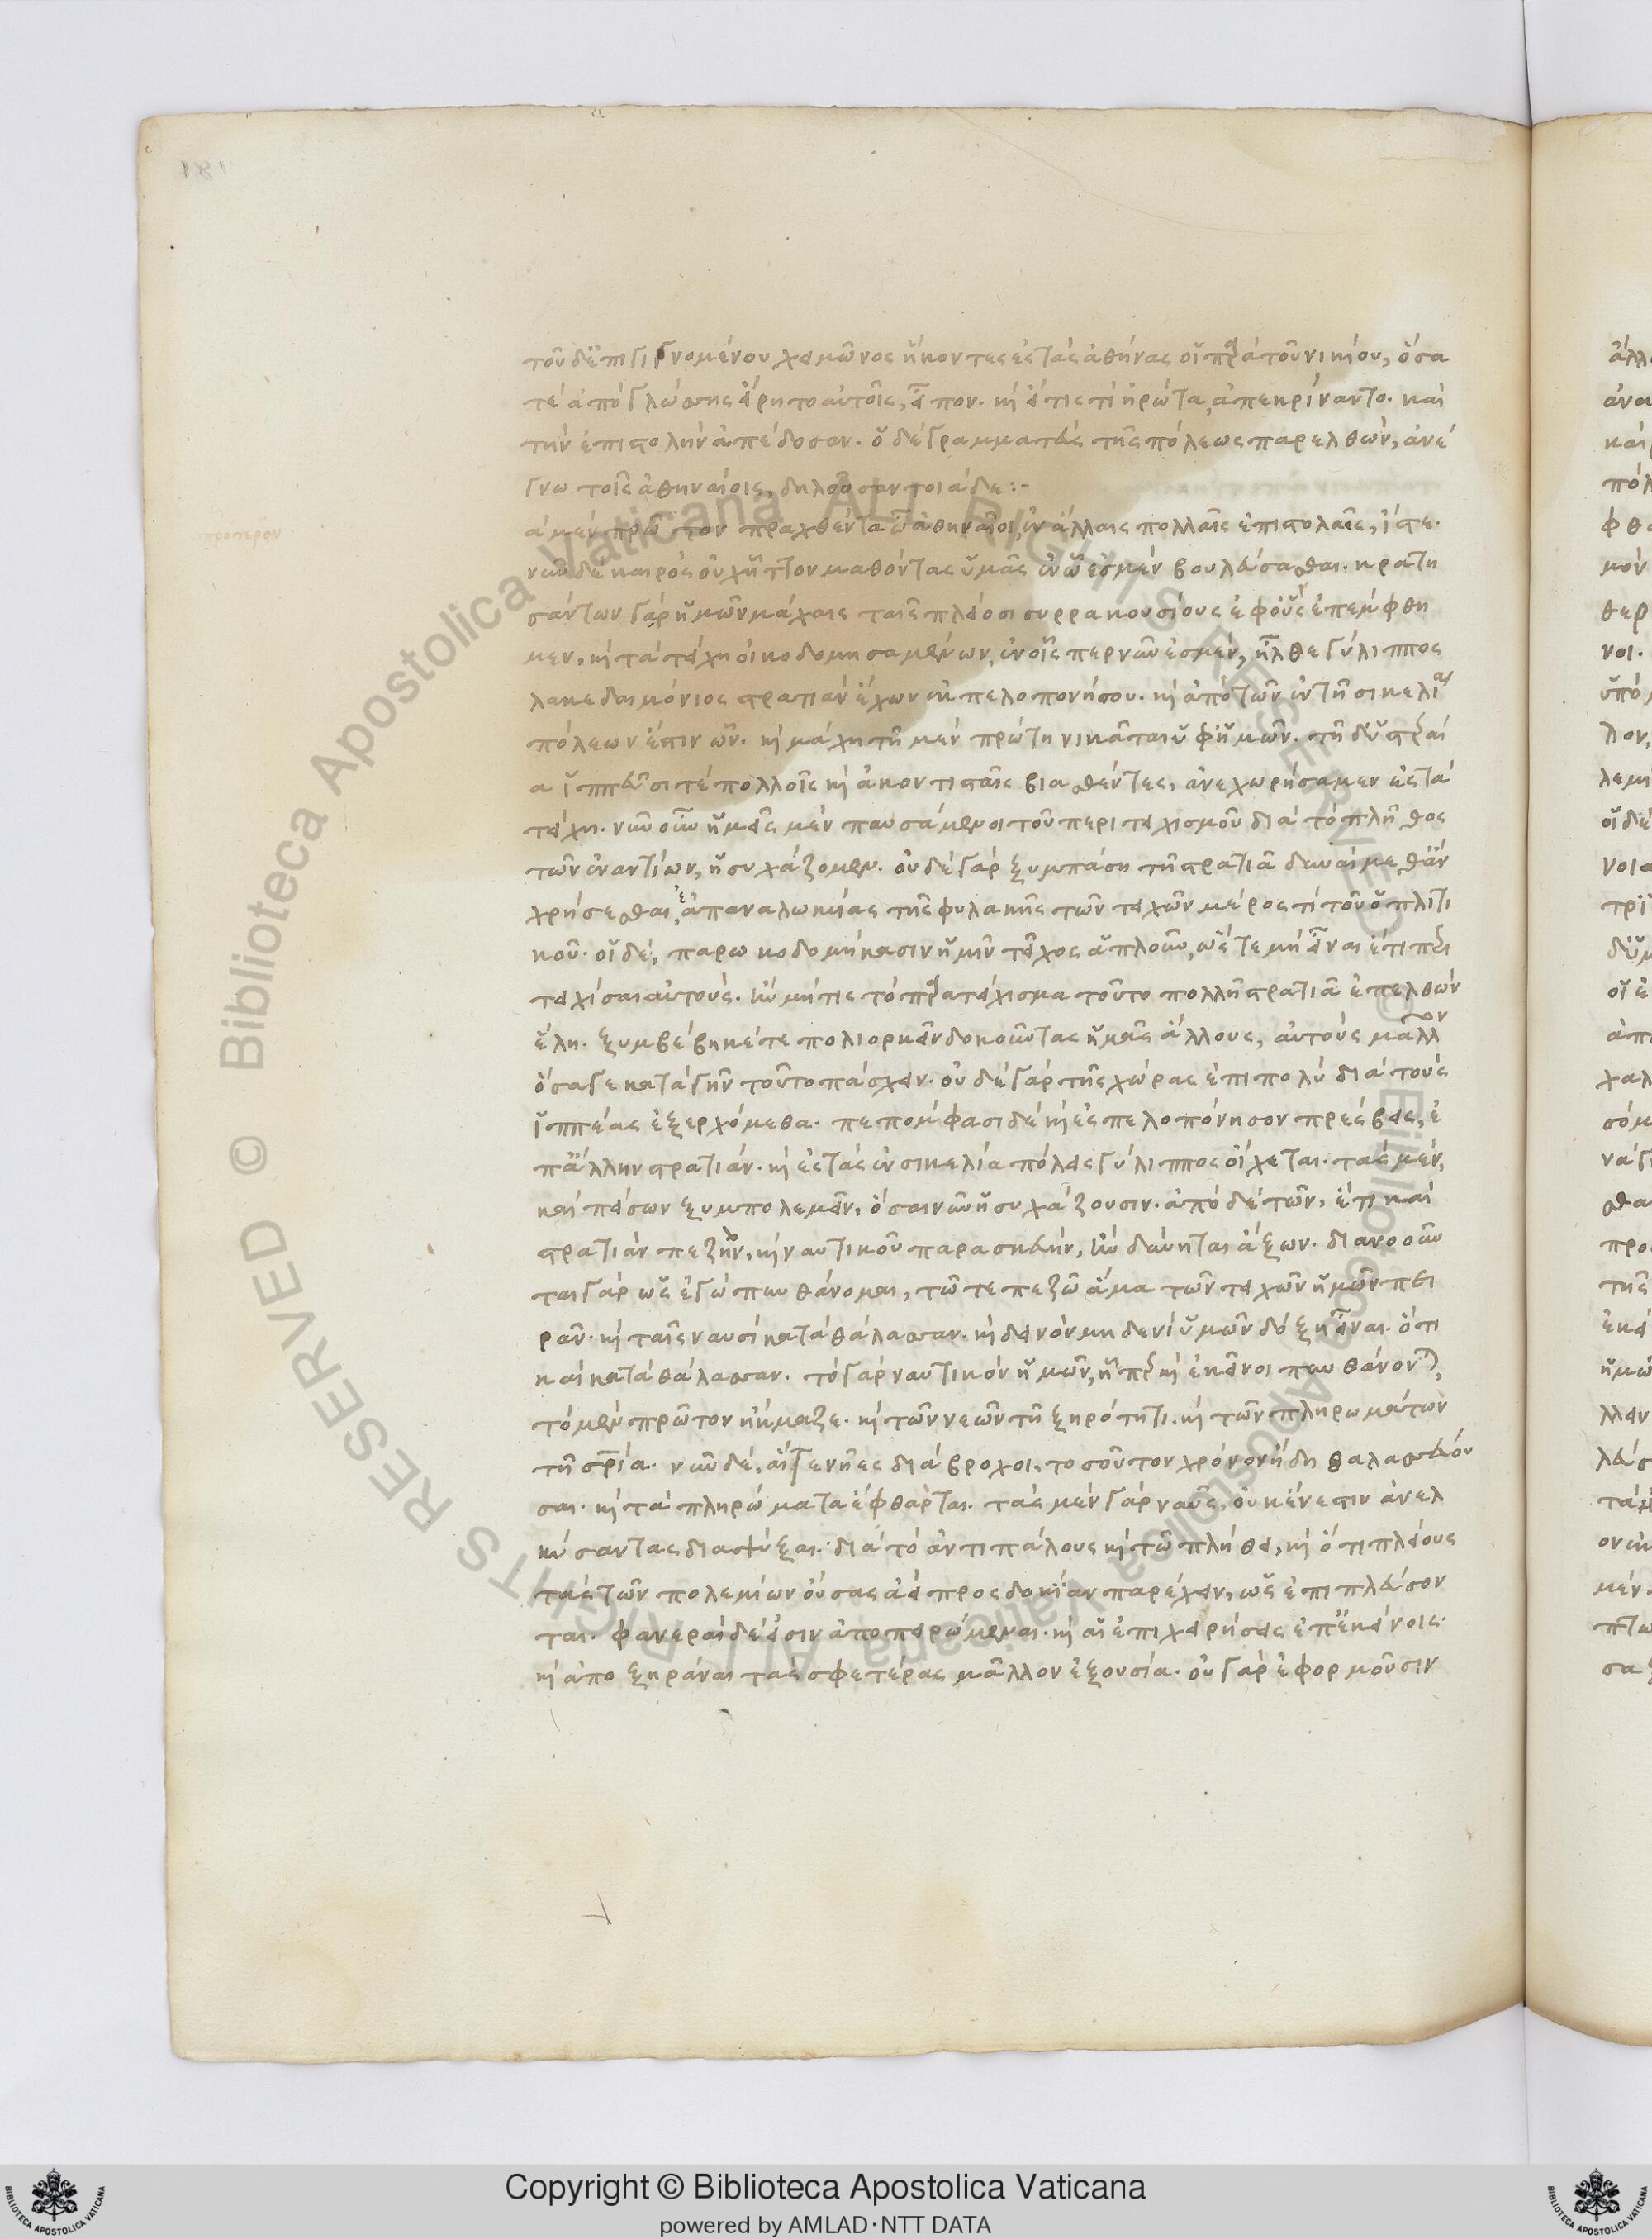 τοῦ δ' ἐπιγιγνομένου χειμῶνος ἥκοντες ἐς τὰς ἀθήνας οἱ παρὰ τοῦ νικίου, ὅσα
τὲ ἀπὸ γλώσσης εἴρητο αὐτοῖς, εἶπον. καὶ εἴ τις τί ἠρώτα, ἀπεκρίναντο. καὶ
τὴν ἐπιστολὴν ἀπέδοσαν. ὁ δὲ γραμματεὺς τῆς πόλεως παρελθὼν, ἀνέ
γνω τοῖς ἀθηναίοις, δηλοῦσαν τοιάδε:-
ἃ μὲν πρῶτον πραχθέντα ὦ ἀθηναῖοι, ἐν ἄλλαις πολλαῖς ἐπιστολαῖς, ἴστε.
νῦν δὲ καιρὸς οὐχ ἧττον μαθόντας ὑμᾶς ἐν ᾧ ἐσμὲν βουλεύσασθαι. κρατη
σάντων γὰρ ἡμῶν μάχαις ταῖς πλείοσι συρρακουσίους ἐφ' οὓς ἐπέμφθη
μεν, καὶ τὰ τείχη οἰκοδομησαμένων, ἐν οἷς περ νῦν ἐσμὲν, ἦλθε γύλιππος
λακεδαιμόνιος στρατιὰν ἔχων ἐκ πελοπονήσου. καὶ ἀπὸ τῶν ἐν τῇ σικελίᾳ
πόλεων ἔστιν ὧν. καὶ μάχῃ τῇ μὲν πρώτῃ νικᾶται ὑφ' ἡμῶν. τῇ δ' ὑστεραί
α ἱππεῦσι τὲ πολλοῖς καὶ ἀκοντισταῖς βιασθέντες, ἀνεχωρήσαμεν ἐς τὰ
τείχη. νῦν οὖν ἡμεῖς μὲν παυσάμενοι τοῦ περιτειχισμοῦ διὰ τὸ πλῆθος
τῶν ἐναντίων, ἡσυχάζομεν. οὐδὲ γὰρ ξυμπάσῃ τῇ στρατιᾷ δυναίμεθ' ἂν
χρήσεσθαι, ἀπαναλωκυίας τῆς φυλακῆς τῶν τειχῶν μέρος τὶ τοῦ ὁπλιτι
κοῦ. οἱ δὲ, παρωκοδομήκασιν ἡμῖν τεῖχος ἁπλοῦν, ὥστε μὴ εἶναι ἔτι περι
τειχίσαι αὐτοὺς. ἢν μή τις τὸ παρατείχισμα τοῦτο πολλῇ στρατιᾷ ἐπελθὼν
ἕλῃ. ξυμβέβηκέ τε πολιορκεῖν δοκοῦντας ἡμᾶς ἄλλους, αὐτοὺς μᾶλλον
ὅσα γε κατὰ γῆν τοῦτο πάσχειν. οὐδὲ γὰρ τῆς χώρας ἐπιπολὺ διὰ τοὺς
ἱππέας ἐξερχόμεθα. πεπόμφασι δὲ καὶ ἐς πελοπόνησον πρέσβεις, ἐ
π' ἄλλην στρατιάν. καὶ ἐς τὰς ἐν σικελίᾳ πόλεις γύλιππος οἴχεται. τὰς μὲν,
καὶ πείσων ξυμπολεμεῖν, ὅσαι νῦν ἡσυχάζουσιν. ἀπὸ δὲ τῶν, ἔτι καὶ
στρατιὰν πεζὴν, καὶ ναυτικοῦ παρασκευὴν, ἢν δύνηται ἄξων. διανοοῦν
ται γὰρ ὡς ἐγὼ πυνθάνομαι, τῷ τε πεζῷ ἅμα τῶν τειχῶν ἡμῶν πει
ρᾶν. καὶ ταῖς ναυσὶ κατὰ θάλασσαν. καὶ δεινὸν μηδενὶ ὑμῶν δόξῃ εἶναι. ὅτι
καὶ κατὰ θάλασσαν. τὸ γὰρ ναυτικὸν ἡμῶν, ἧπερ καὶ ἐκεῖνοι πυνθάνονται,
τὸ μὲν πρῶτον ἤκμαζε. καὶ τῶν νεῶν τῇ ξηρότητι. καὶ τῶν πληρωμάτων
τῇ σωτηρίᾳ. νῦν δὲ, αἵ τε νῆες διάβροχοι, τοσοῦτον χρόνον ἤδη θαλασσεύου
σαι. καὶ τὰ πληρώματα ἔφθαρται. τὰς μὲν γὰρ ναῦς, οὐκ ἔνεστιν ἀνελ
κύσαντας διαψύξαι. διὰ τὸ ἀντιπάλους καὶ τῷ πλήθει, καὶ ὅτι πλείους
τὰς τῶν πολεμίων οὔσας ἀεὶ προσδοκίαν παρέχειν, ὡς ἐπιπλεύσον
ται. φανεραὶ δέ εἰσιν ἀποπειρώμεναι. καὶ αἱ ἐπιχειρήσεις ἐπ' ἐκείνοις.
καὶ ἀποξηρᾶναι τὰς σφετέρας μᾶλλον ἐξουσία. οὐ γὰρ ἐφορμοῦσιν
Copyright © Biblioteca Apostolica Vaticana
powered by AMLAD·NTT DATA